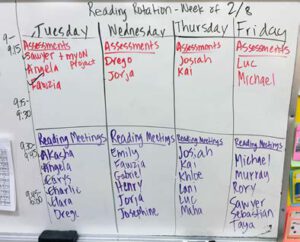 Reading Rotation - Week of 2/8
Tuesday Wednesday Thursday Friday
9-
9:15
Assessments
Sawyer + myON
project
Angela
Fawzia
Assessments
Drego
Jorja
Assessments
Josiah
Kai
Assessments
Luc
Michael
9:15-
9:30
9:30-
Reading Meetings
Akacha
Angela
Carys
Charlie
Clara
Drego
Reading Meetings
Emily
Fawzia
Gabriel
Henry
Jorja
Josephine
Reading Meetings
Josiah
Kai
Khloe
Lani
Luc
Maha
Reading Meetings
Michael
Murray
Rory
Sawyer
Sebastian
Taya
9:45-